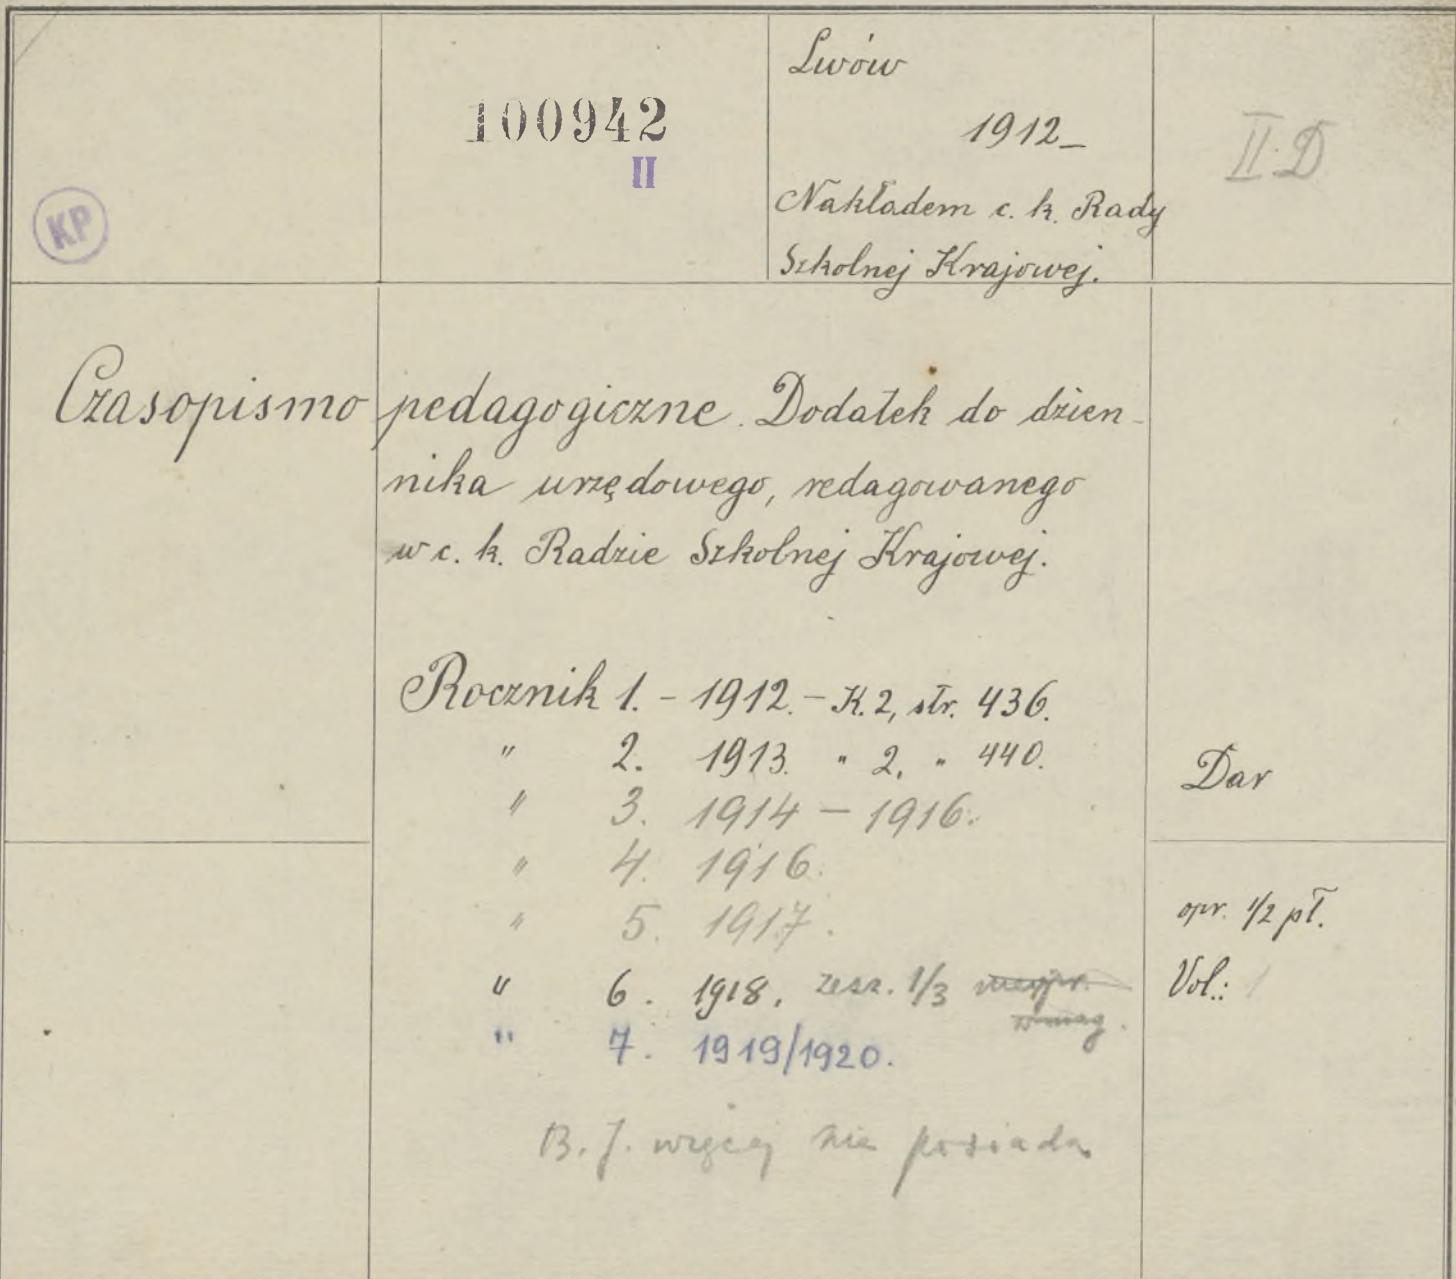 Lwów
100942
II
1912_
II D
KP
Nakładem c. k. Rady
Szkolnej Krajowej.
Czasopismo pedagogiczne. Dodatek do dzien-
nika urzędowego, redagowanego
w c. k. Radzie Szkolnej Krajowej.
Rocznik 1. - 1912. - K. 2, str. 436.
" 2. 1913. " 2, " 440.
Dar
" 3. 1914 - 1916.
" 4. 1916.
" 5. 1917.
opr. 1/2 pł.
" 6. 1918. zesz. 1/3
Vol.: 1
w mag.
" 7. 1919/1920.
B. J. więcej nie posiada